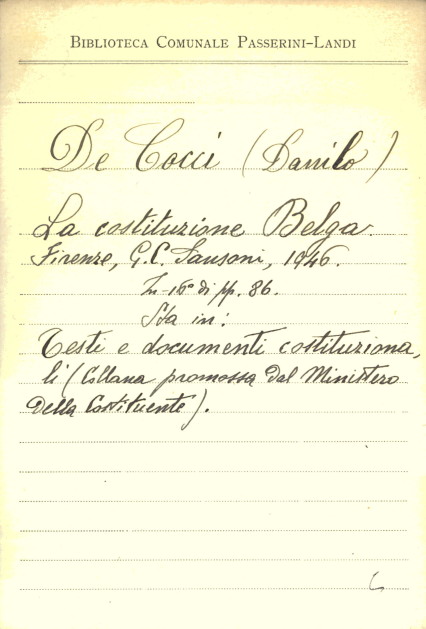 BIBLIOTECA COMUNALE PASSERINI-LANDI
De Cocci (Danilo)
La costituzione Belga.
Firenze, G.C. Sansoni, 1946.
In-16° di pp. 86.
Sta in:
Testi e documenti costituziona,
li (Collana promossa dal Ministero
della Costituente).